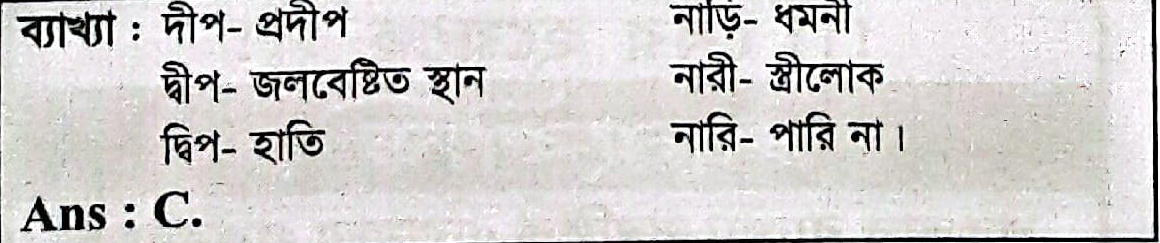 ব্যাখ্যা : দীপ- প্রদীপ নাড়ি- ধমনী
দ্বীপ- জলবেষ্টিত স্থান নারী- স্ত্রীলোক
দ্বিপ- হাতি নারি- পারি না।
Ans : C.